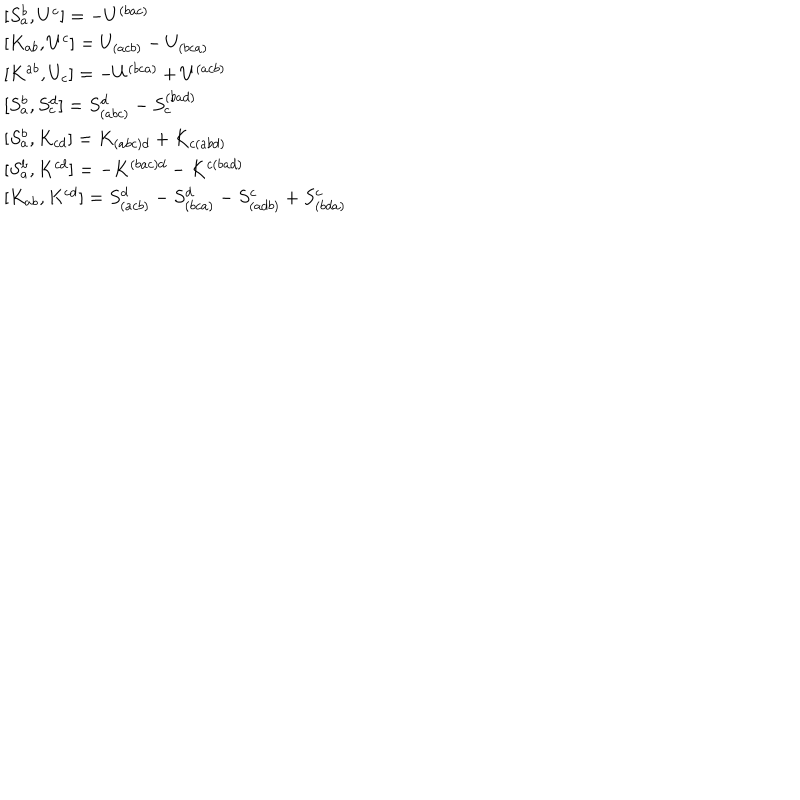 [S_a^b, U^c] = -U^{(bac)}
[K_{ab}, U^c] = U_{(acb)} - U_{(bca)}
[K^{ab}, U_c] = -U^{(bca)} + U^{(acb)}
[S_a^b, S_c^d] = S_{(abc)}^d - S_c^{(bad)}
[S_a^b, K_{cd}] = K_{(abc)d} + K_{c(abd)}
[S_a^b, K^{cd}] = -K^{(bac)d} - K^{c(bad)}
[K_{ab}, K^{cd}] = S_{(acb)}^d - S_{(bca)}^d - S_{(adb)}^c + S_{(bda)}^c